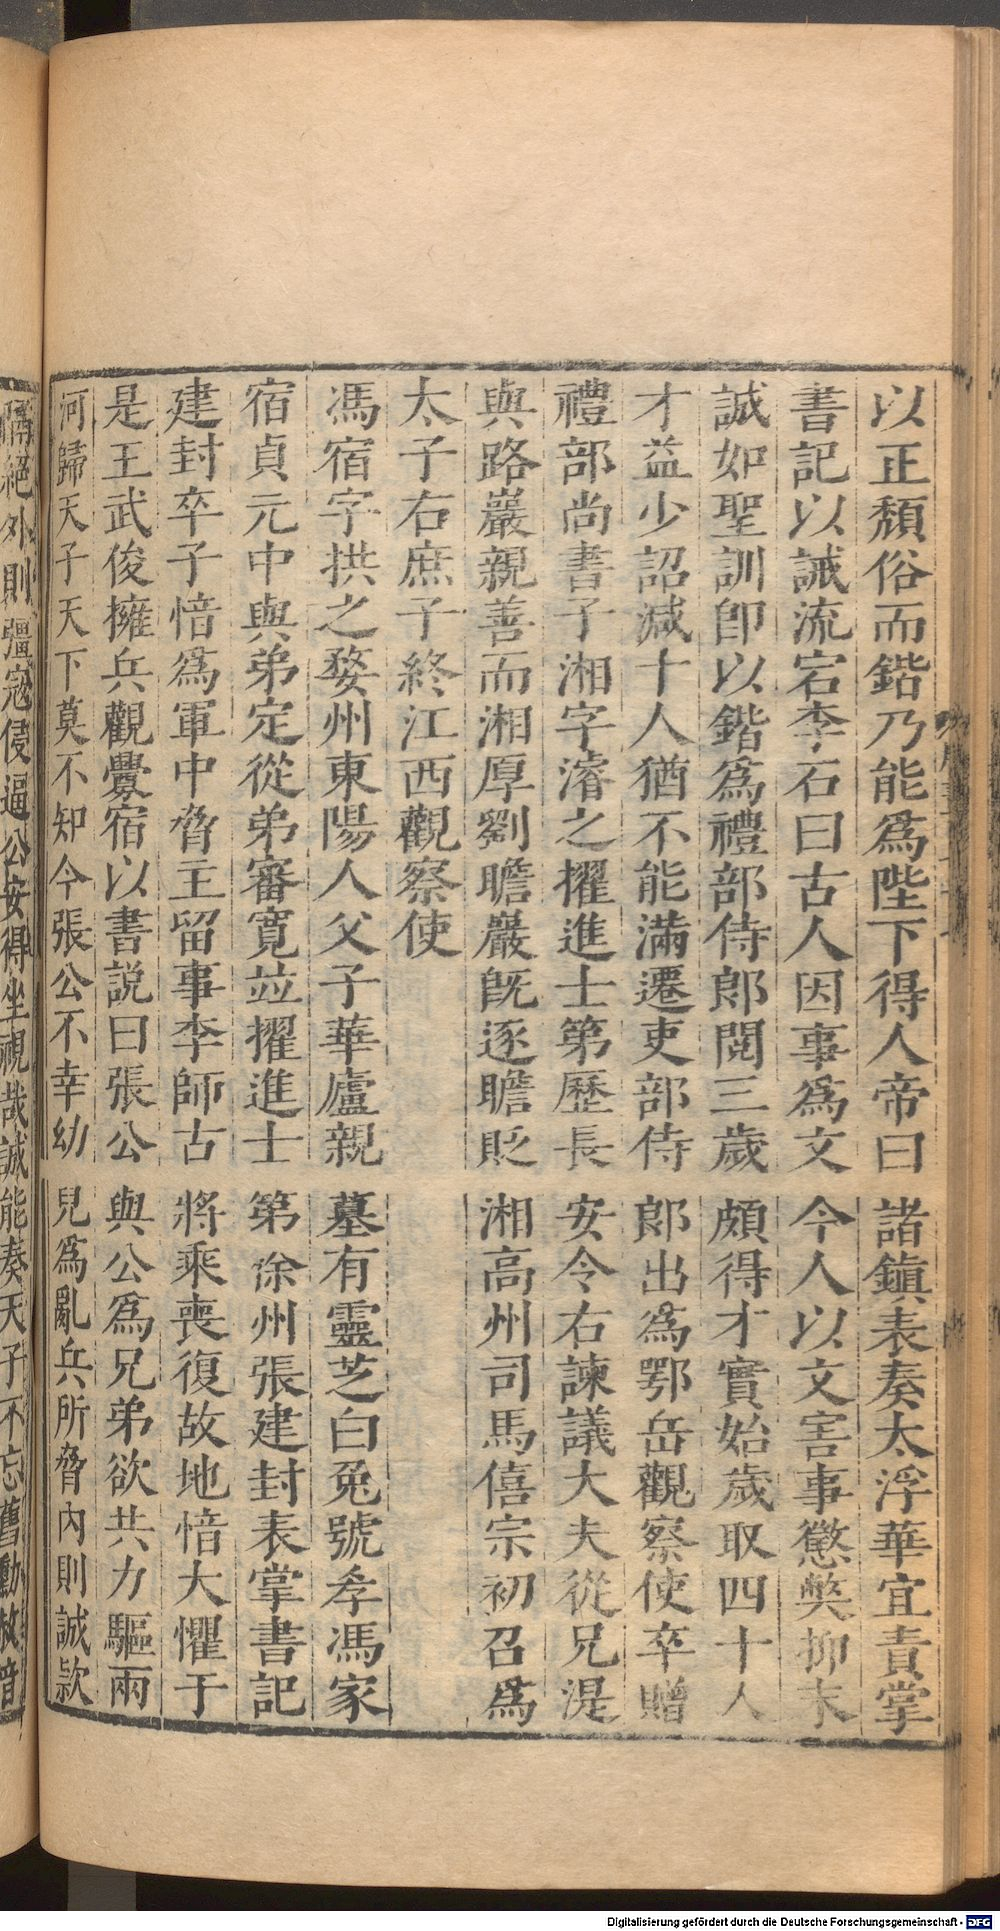 以正頹俗而鍇乃能爲陛下得人帝曰諸鎭表奏太浮華宜責掌
書記以誡流宕李石曰古人因事爲文今人以文害事懲獘抑末
誠如聖訓卽以鍇爲禮部侍郞閱三歲頗得才實始歲取四十人
才益少詔減十人猶不能滿遷吏部侍郞出爲鄂岳觀察使卒贈
禮部尚書子湘字濬之擢進士第歷長安令右諫議大夫從兄湜
與路巖親善而湘厚劉瞻巖旣逐瞻貶湘高州司馬僖宗初召爲
太子右庶子終江西觀察使
馮宿字拱之婺州東陽人父子華廬親墓有靈芝白兔號孝馮家
宿貞元中與弟定從弟審寬竝擢進士第徐州張建封表掌書記
建封卒子愔爲軍中脅主留事李師古將乘喪復故地愔大懼于
是王武俊擁兵觀釁宿以書說曰張公與公爲兄弟欲共力驅兩
河歸天子天下莫不知今張公不幸幼兒爲亂兵所脅內則誠款
隔絕外則彊寇侵逼公安得坐視哉誠能奏天子不忘舊勳赦愔
Digitalisierung gefördert durch die Deutsche Forschungsgemeinschaft - DFG